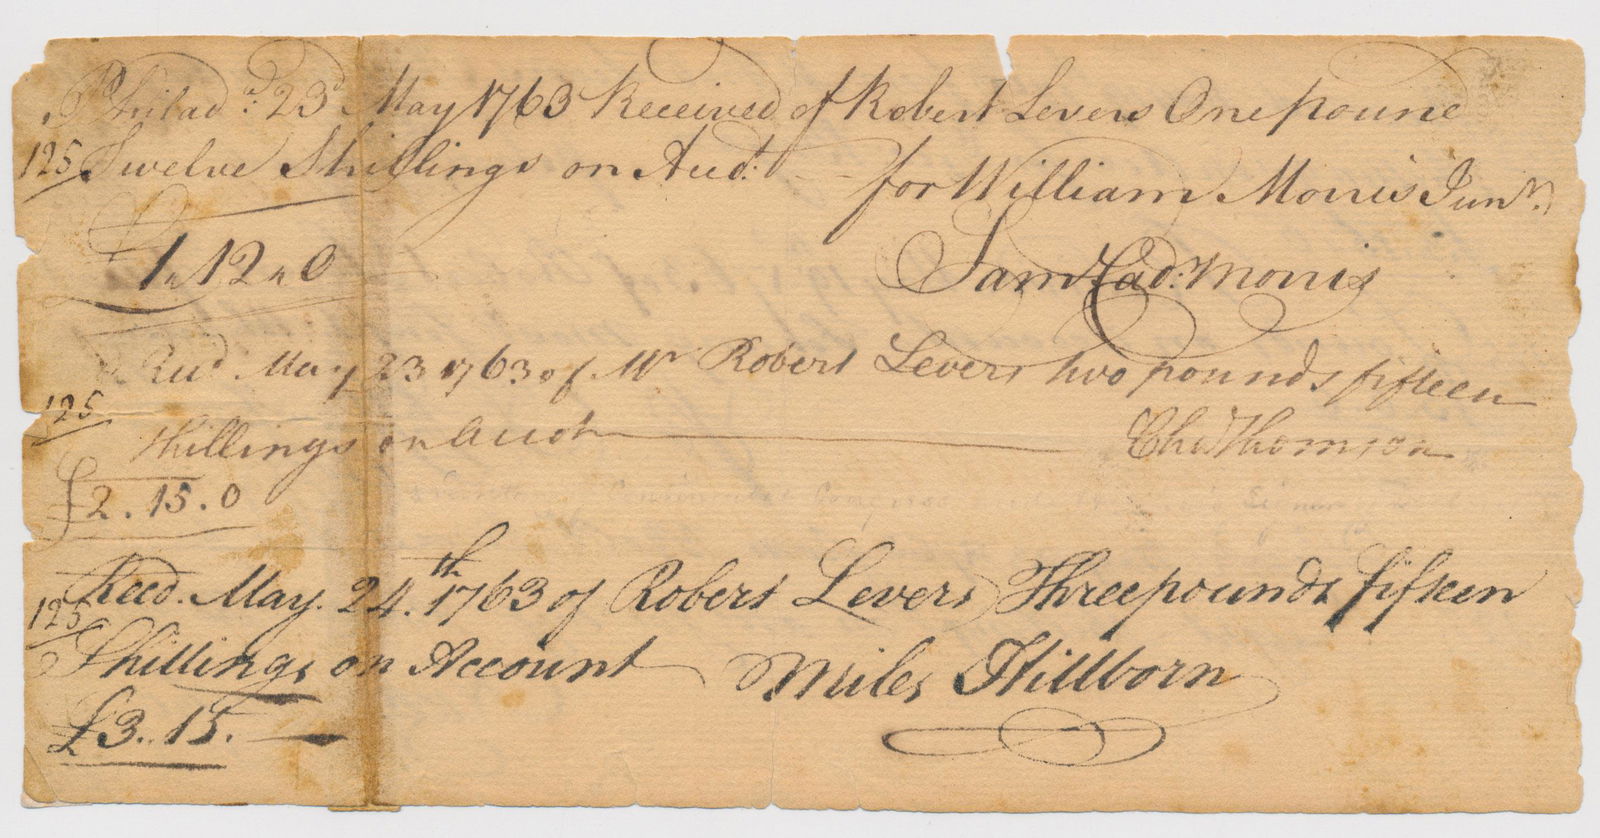 Philad.ª 23ᵈ May 1763 Received of Robert Levers One pound
125 Twelve Shillings on Acct: for William Morris Junʳ.
£1 " 12 " 0 Sam Cad: Morris
Recd May 23 1763 of Mr Robert Levers two pounds fifteen
125
shillings on Accot Chas Thomson
£2.15.0
Recd. May. 24.th 1763 of Robert Levers Three pounds fifteen
125
Shillings on Account Miles Hillborn
£3..15.